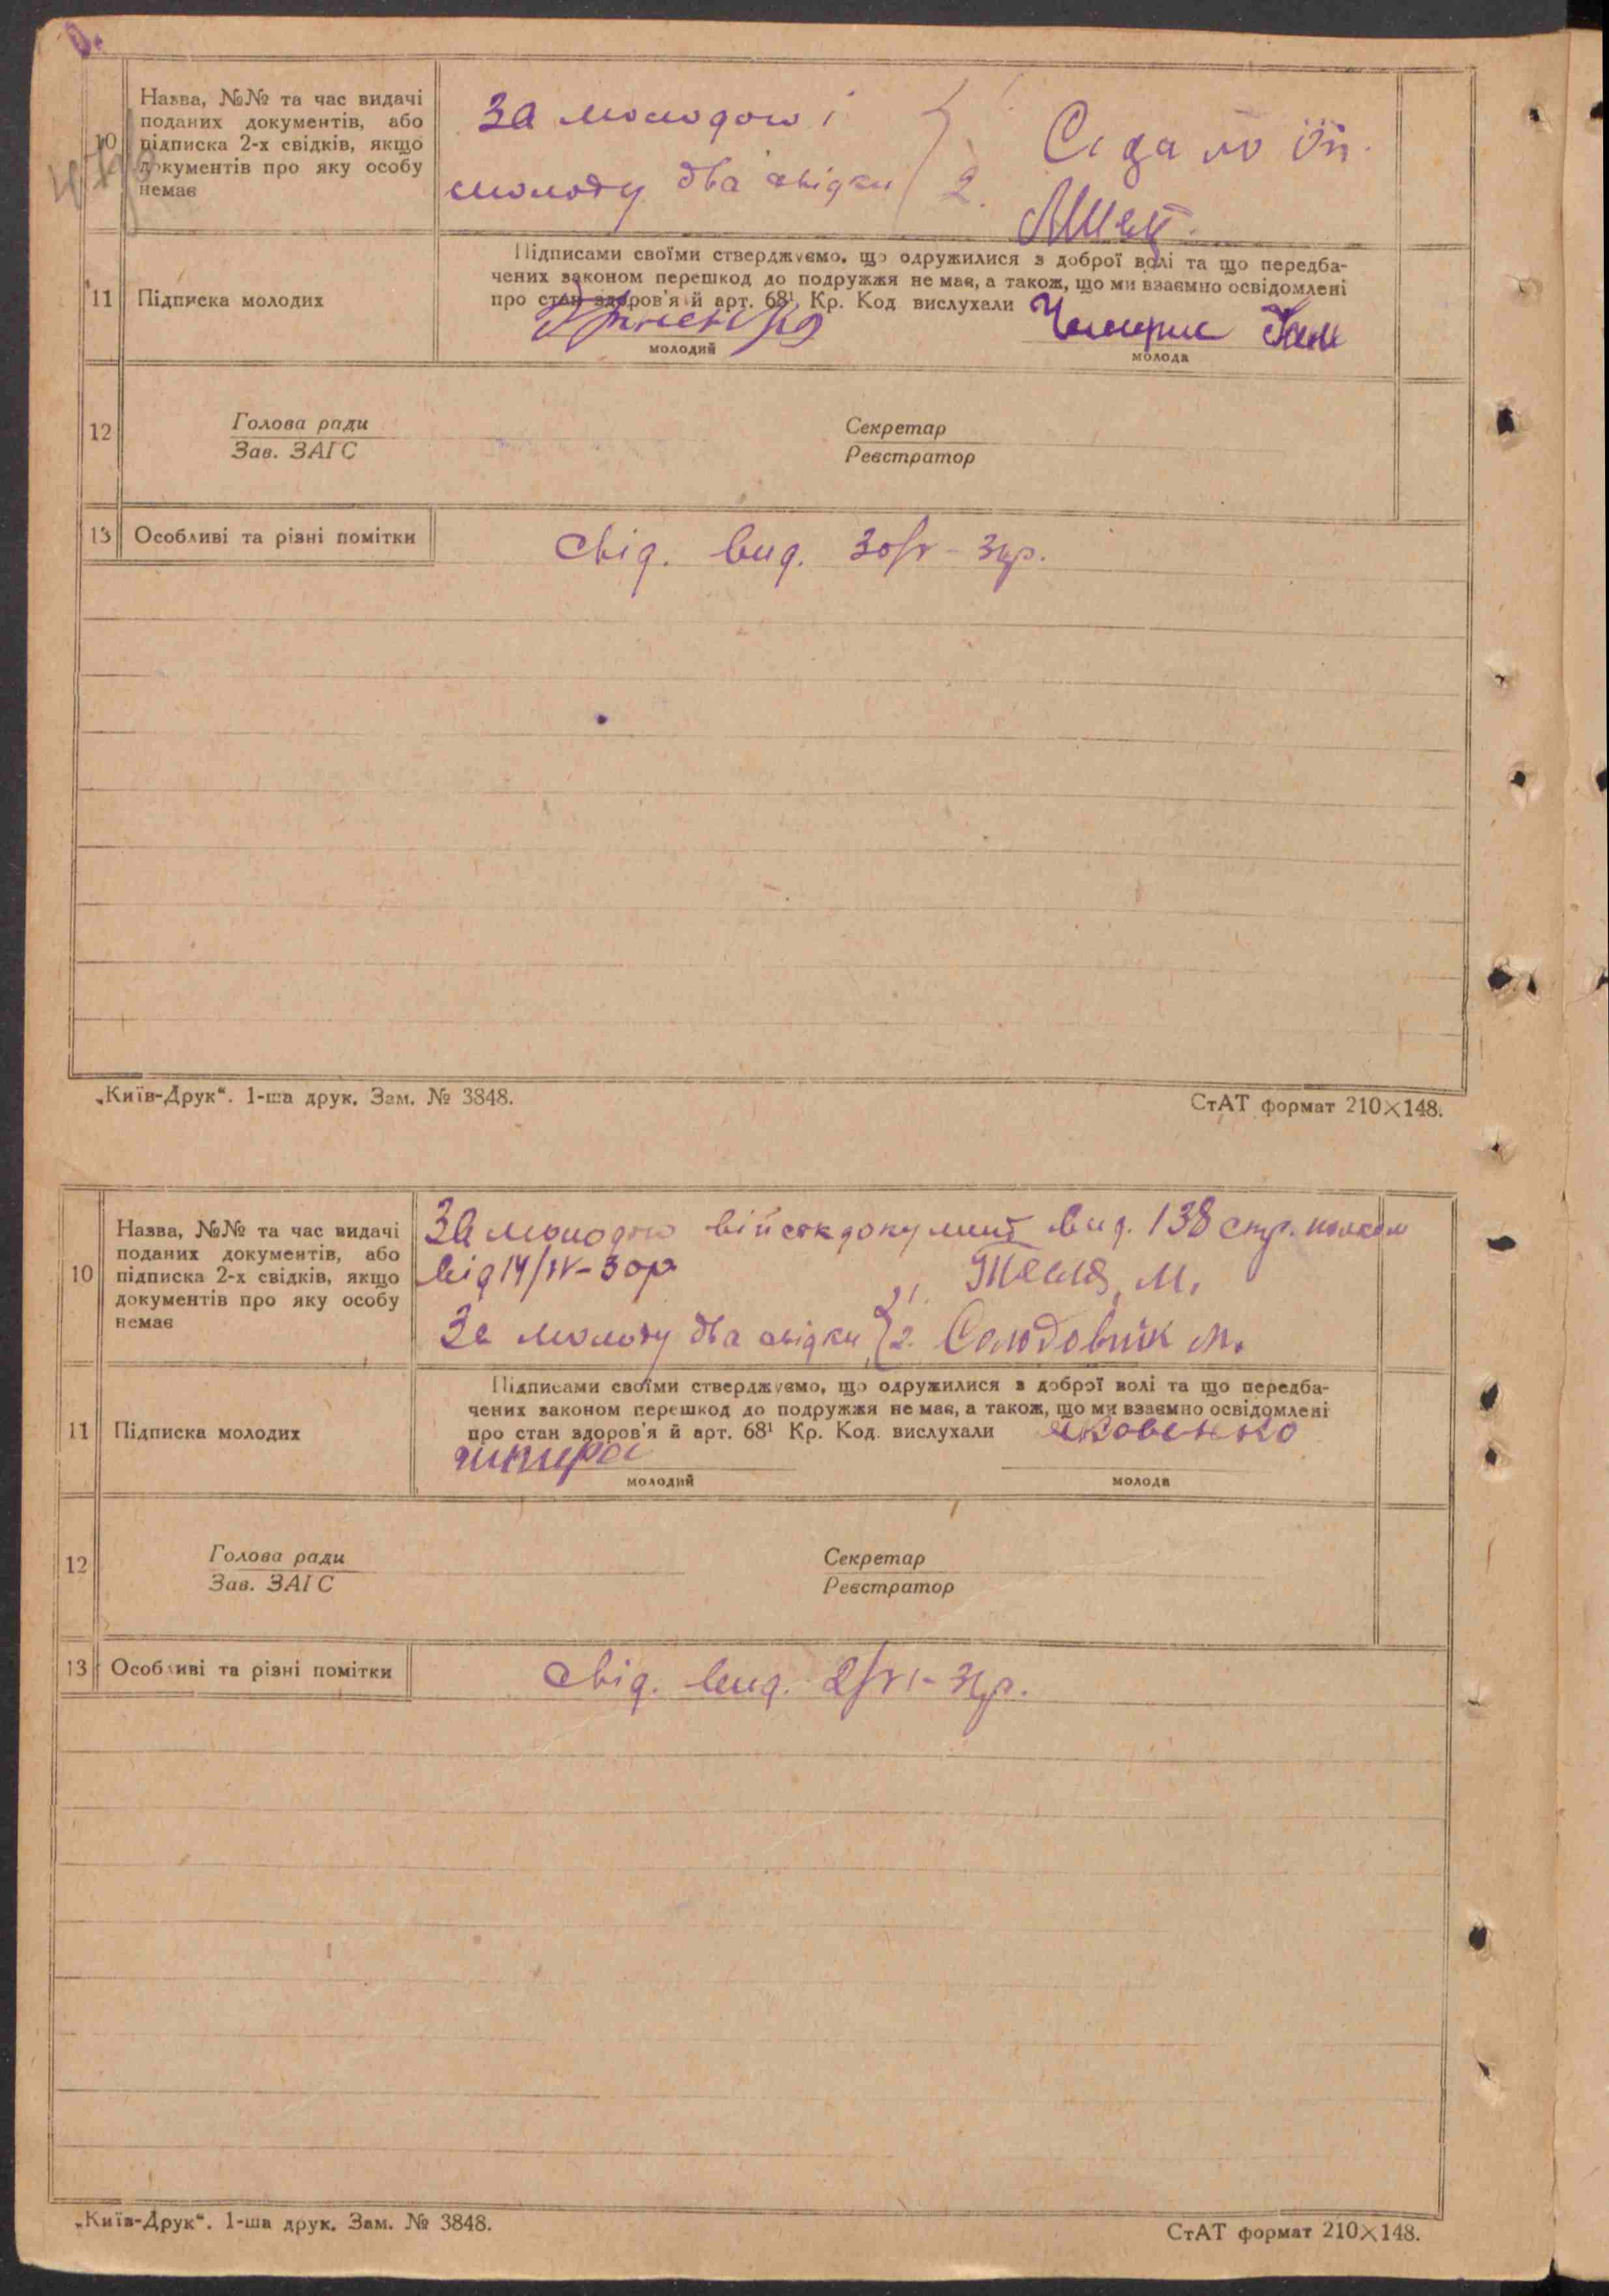 10
Назва, №№ та час видачі
поданих документів, або
підписка 2-х свідків, якщо
документів про яку особу
немає
За молодого і
молоду два свідки
2.
11
Підписка молодих
Підписами своїми стверджуємо, що одружилися з доброї волі та що передба-
чених законом перешкод до подружжя не має, а також, що ми взаємно освідомлені
про стан здоров'я й арт. 68¹ Кр. Код вислухали
молодий
молода
12
Голова ради
Зав. ЗАГС
Секретар
Реєстратор
13
Особливі та різні помітки
свід. вид. 30/V-31р.
„Київ-Друк“. 1-ша друк. Зам. № 3848.
СтАТ формат 210×148.
10
Назва, №№ та час видачі
поданих документів, або
підписка 2-х свідків, якщо
документів про яку особу
немає
За молодого військ документ вид. 138 стр. полком
від 14/IV-30р
1. М.
За молоду два свідки 2. Солюдовнік М.
11
Підписка молодих
Підписами своїми стверджуємо, що одружилися з доброї волі та що передба-
чених законом перешкод до подружжя не має, а також, що ми взаємно освідомлені
про стан здоров'я й арт. 68¹ Кр. Код. вислухали
Яковенко
молодий
молода
12
Голова ради
Зав. ЗАГС
Секретар
Реєстратор
13
Особливі та різні помітки
свід. вид. 2/VI-31р.
„Київ-Друк“. 1-ша друк. Зам. № 3848.
СтАТ формат 210×148.